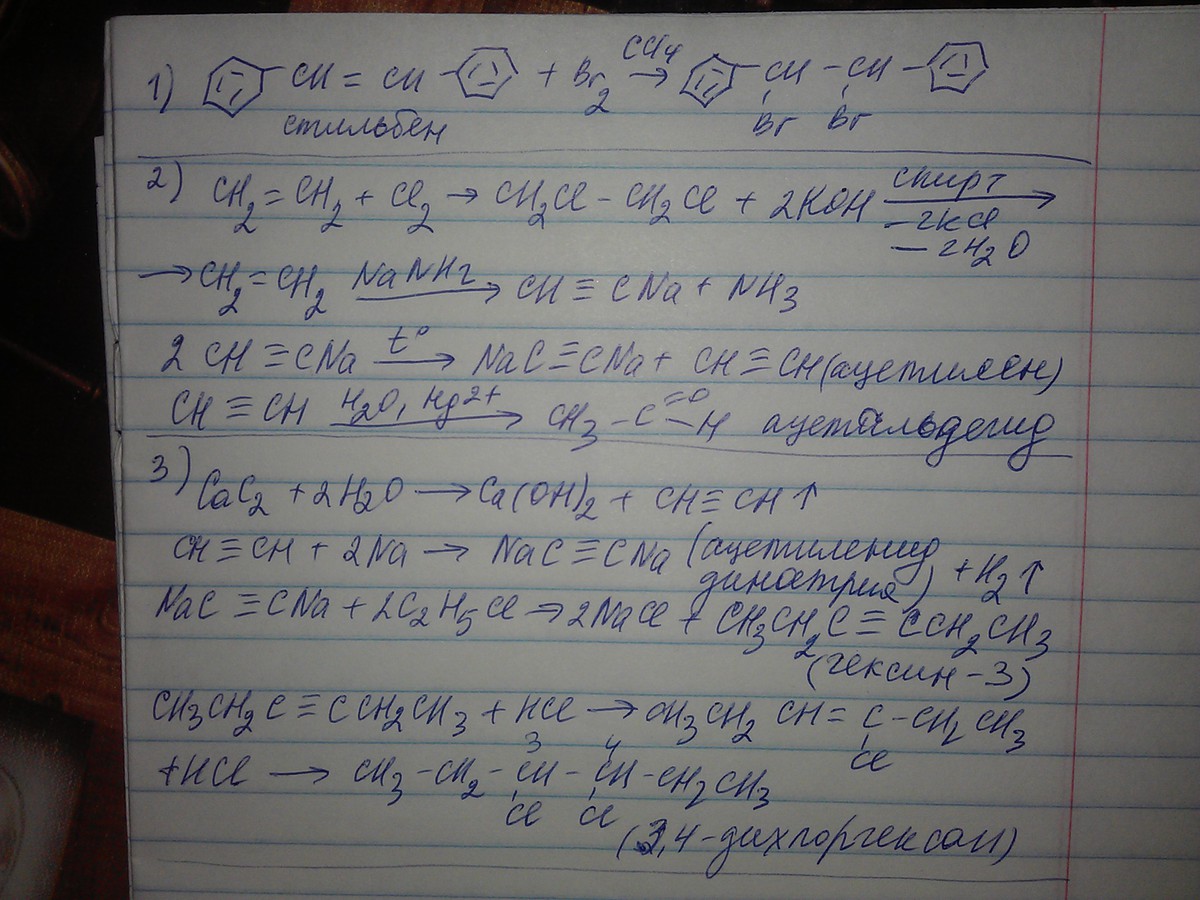 1) CH = CH + Br2 CCl4 → CH – CH
стильбен Br Br
2) CH2 = CH2 + Cl2 → CH2Cl – CH2Cl + 2KOH спирт →
–2KCl
– 2H2O
→ CH2 = CH2 NaNH2 → CH ≡ CNa + NH3
2 CH ≡ CNa t° → NaC ≡ CNa + CH ≡ CH (ацетилен)
CH ≡ CH H2O, Hg2+ → CH3 – C =O – H ацетальдегид
3) CaC2 + 2H2O → Ca(OH)2 + CH ≡ CH ↑
CH ≡ CH + 2Na → NaC ≡ CNa (ацетиленид
динатрия) + H2 ↑
NaC ≡ CNa + 2C2H5Cl → 2NaCl + CH3CH2C ≡ CCH2CH3
(гексин – 3)
CH3CH2C ≡ CCH2CH3 + HCl → CH3CH2 CH = C – CH2 CH3
Cl
3 4
+HCl → CH3 – CH2 – CH – CH – CH2 CH3
Cl Cl
(3,4 – дихлоргексан)